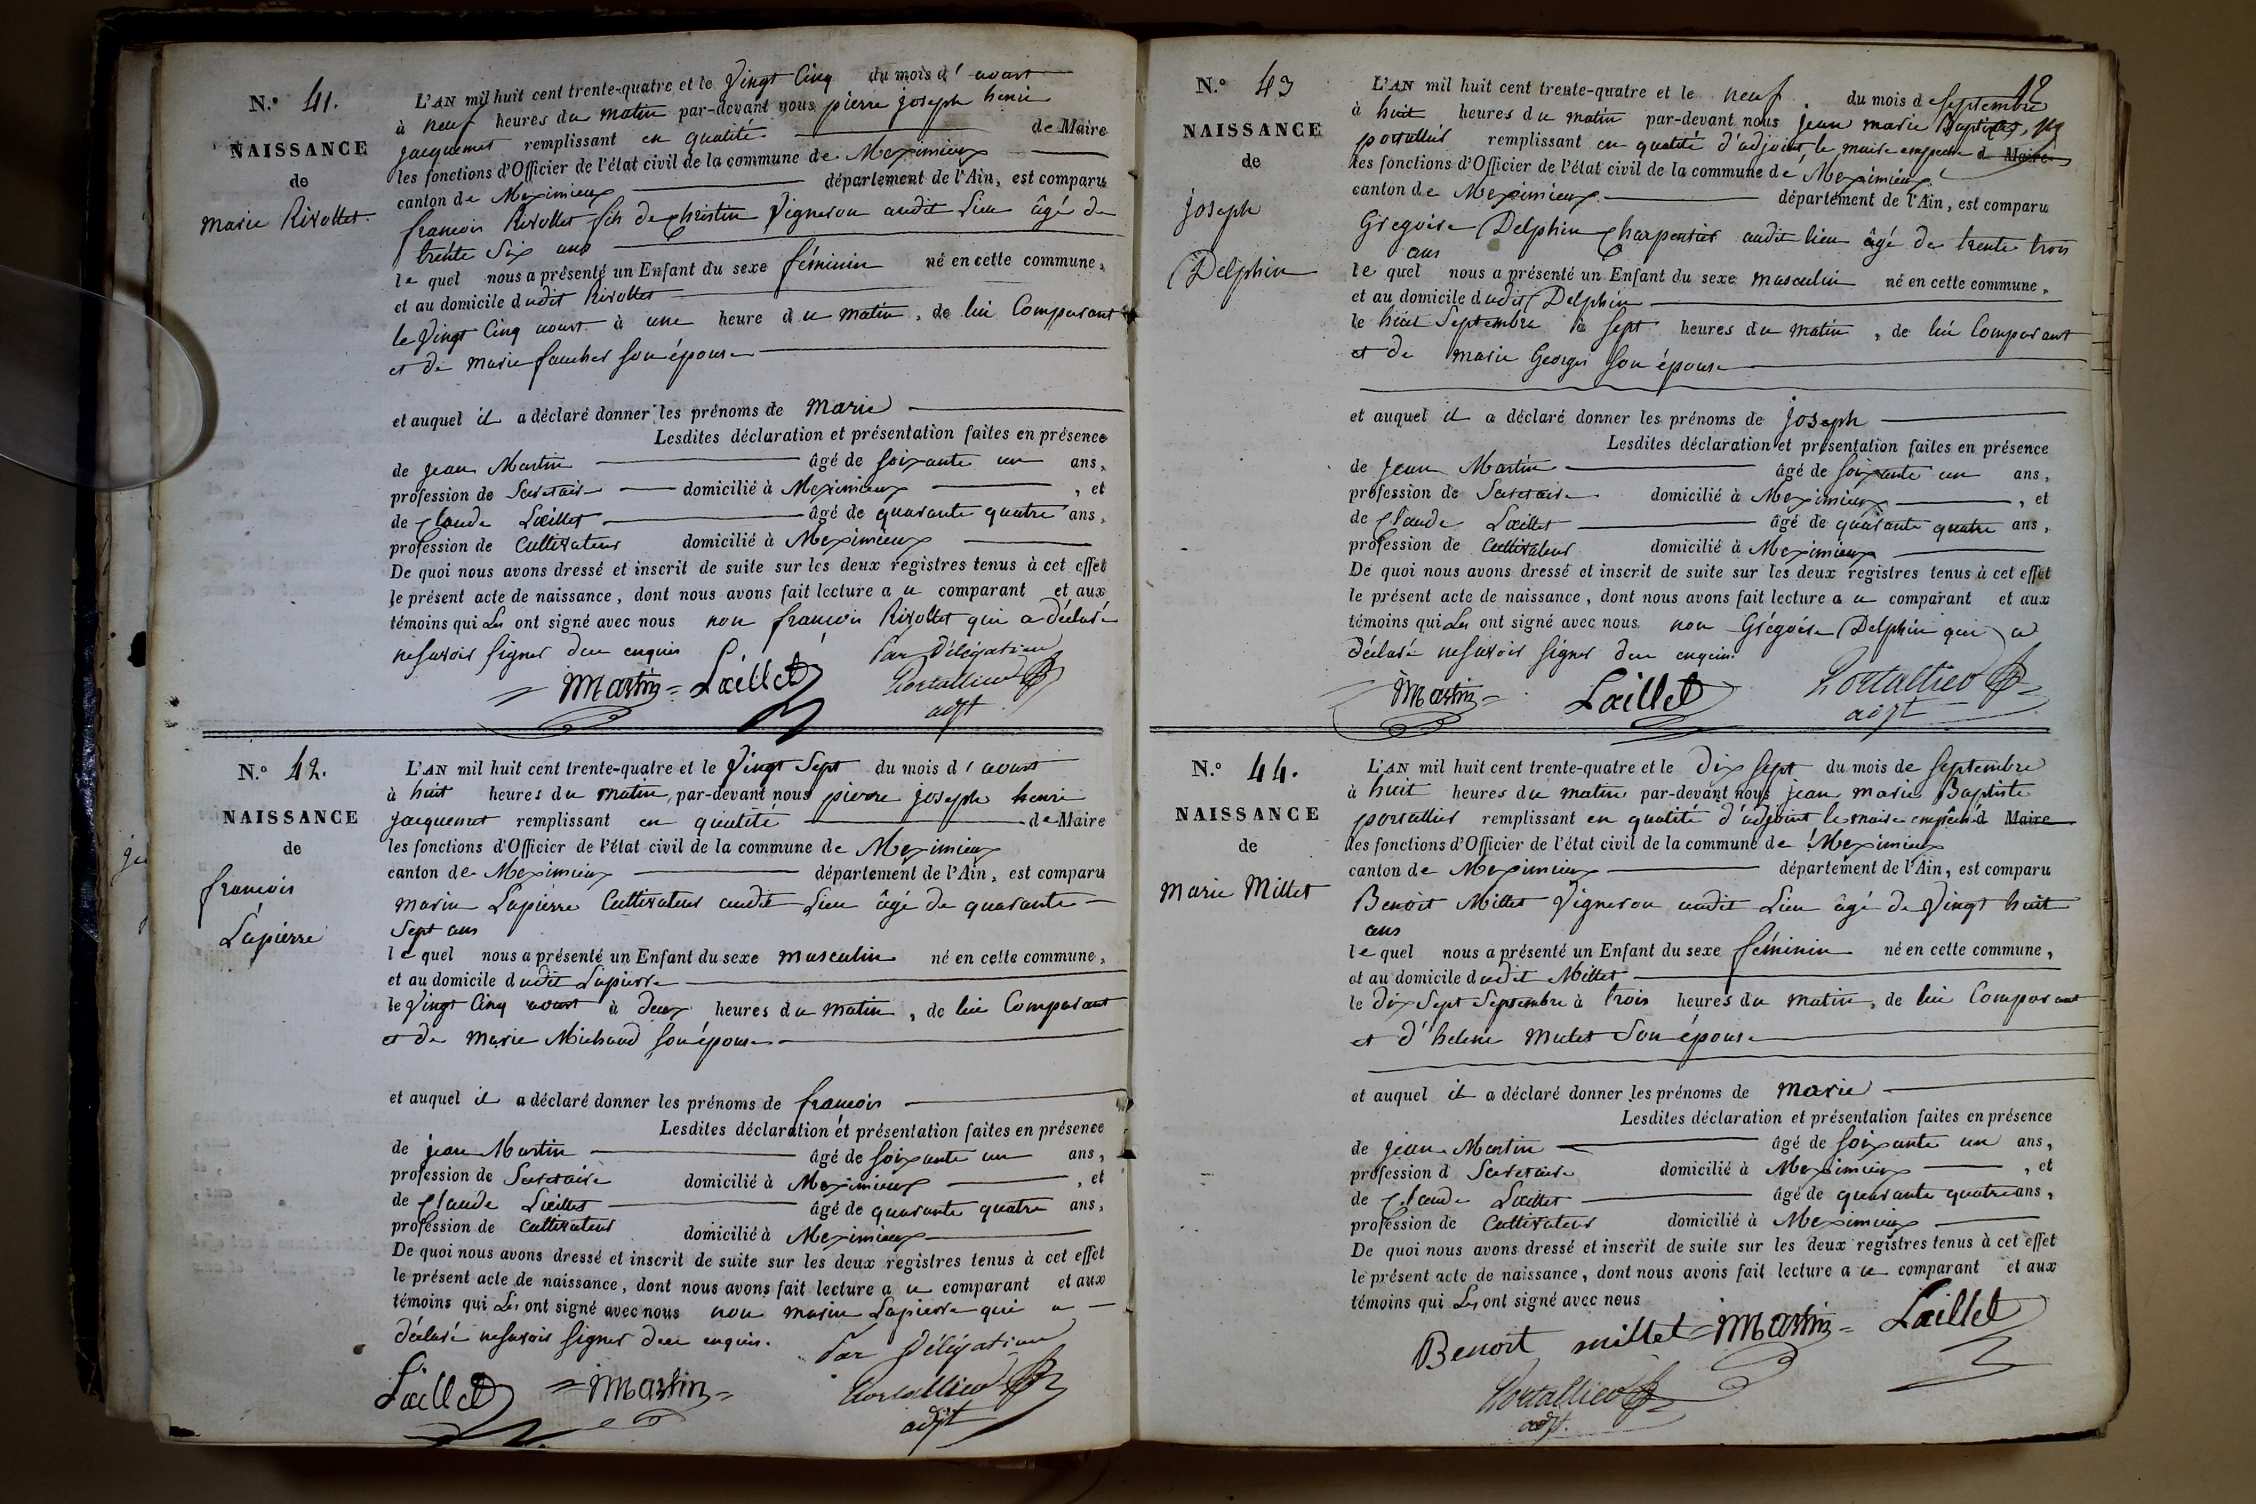 N.º 41.
NAISSANCE
de
Marie Rivollet.
L'AN mil huit cent trente-quatre et le Vingt Cinq du mois d'aoust
à neuf heures du matin par-devant nous pierre joseph henri
jacquemet remplissant en qualité de Maire
les fonctions d'Officier de l'état civil de la commune de Meximieux
canton de Meximieux département de l'Ain, est comparu
francois Rivollet fils de Christin Vigneron audit Lieu âgé de
trente Six ans
le quel nous a présenté un Enfant du sexe féminin né en cette commune,
et au domicile dudit Rivollet
le Vingt Cinq aoust à une heure du matin, de lui Comparant
et de marie faucher son épouse
et auquel il a déclaré donner les prénoms de Marie
Lesdites déclaration et présentation faites en présence
de jean Martin âgé de soixante un ans,
profession de Secretaire domicilié à Meximieux, et
de Claude Lœillet âgé de quarante quatre ans,
profession de Cultivateur domicilié à Meximieux
De quoi nous avons dressé et inscrit de suite sur les deux registres tenus à cet effet
le présent acte de naissance, dont nous avons fait lecture au comparant et aux
témoins qui Les ont signé avec nous non francois Rivollet qui a déclaré
ne savoir signer de ce enquis
Par Délégation
Martin Lœillet Portallier
adjt
N.º 42.
NAISSANCE
de
francois
Lapierre
L'AN mil huit cent trente-quatre et le Vingt Sept du mois d'aoust
à huit heures du matin, par-devant nous pierre joseph henri
jacquemet remplissant en qualité de Maire
les fonctions d'Officier de l'état civil de la commune de Meximieux
canton de Meximieux département de l'Ain, est comparu
marin Lapierre Cultivateur audit Lieu âgé de quarante
Sept ans
le quel nous a présenté un Enfant du sexe masculin né en cette commune,
et au domicile dudit Lapierre
le Vingt Cinq aoust à deux heures du matin, de lui Comparant
et de Marie Michaud son épouse
et auquel il a déclaré donner les prénoms de francois
Lesdites déclaration et présentation faites en présence
de jean Martin âgé de soixante un ans,
profession de Secretaire domicilié à Meximieux, et
de Claude Lœillet âgé de quarante quatre ans,
profession de Cultivateur domicilié à Meximieux
De quoi nous avons dressé et inscrit de suite sur les deux registres tenus à cet effet
le présent acte de naissance, dont nous avons fait lecture au comparant et aux
témoins qui Les ont signé avec nous non marin Lapierre qui a
déclaré ne savoir signer de ce enquis.
Par Délégation
Lœillet Martin Portallier
adjt
12
N.º 43
NAISSANCE
de
joseph
Delphin
L'AN mil huit cent trente-quatre et le neuf du mois de Septembre
à huit heures du matin par-devant nous jean marie Baptiste
portallier remplissant en qualité d'adjoint le maire empeché de Maire
les fonctions d'Officier de l'état civil de la commune de Meximieux
canton de Meximieux département de l'Ain, est comparu
Gregoire Delphin Charpentier audit lieu âgé de trente trois
ans
le quel nous a présenté un Enfant du sexe masculin né en cette commune,
et au domicile dudit Delphin
le huit Septembre à Sept heures du matin, de lui Comparant
et de marie Georges son épouse
et auquel il a déclaré donner les prénoms de joseph
Lesdites déclaration et présentation faites en présence
de jean Martin âgé de soixante un ans,
profession de Secretaire domicilié à Meximieux, et
de Claude Lœillet âgé de quarante quatre ans,
profession de Cultivateur domicilié à Meximieux
De quoi nous avons dressé et inscrit de suite sur les deux registres tenus à cet effet
le présent acte de naissance, dont nous avons fait lecture au comparant et aux
témoins qui Les ont signé avec nous non Grégoire Delphin qui a
déclaré ne savoir signer de ce enquis.
Martin Lœillet Portallier
adjt
N.º 44.
NAISSANCE
de
Marie Millet
L'AN mil huit cent trente-quatre et le Dix Sept du mois de Septembre
à huit heures du matin par-devant nous jean marie Baptiste
portallier remplissant en qualité d'adjoint le maire empêché d Maire
les fonctions d'Officier de l'état civil de la commune de Meximieux
canton de Meximieux département de l'Ain, est comparu
Benoit Millet Vigneron audit Lieu âgé de Vingt huit
ans
le quel nous a présenté un Enfant du sexe féminin né en cette commune,
et au domicile dudit Millet
le Dix Sept Septembre à trois heures du matin, de lui Comparant
et d'helene Mulet Son épouse
et auquel il a déclaré donner les prénoms de Marie
Lesdites déclaration et présentation faites en présence
de jean Martin âgé de soixante un ans,
profession d Secretaire domicilié à Meximieux, et
de Claude Lœillet âgé de quarante quatre ans,
profession de Cultivateur domicilié à Meximieux
De quoi nous avons dressé et inscrit de suite sur les deux registres tenus à cet effet
le présent acte de naissance, dont nous avons fait lecture au comparant et aux
témoins qui Les ont signé avec nous
Benoit millet Martin Lœillet
Portallier
adjt.